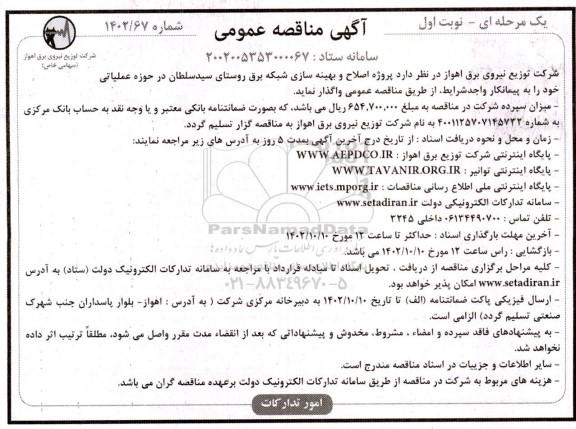 یک مرحله ای - نوبت اول
آگهی مناقصه عمومی
شماره ۱۴۰۲/۶۷
شرکت توزیع نیروی برق اهواز
(سهامی خاص)
سامانه ستاد : ۲۰۰۲۰۰۵۳۵۳۰۰۰۰۶۷
شرکت توزیع نیروی برق اهواز در نظر دارد پروژه اصلاح و بهینه سازی شبکه برق روستای سیدسلطان در حوزه عملیاتی
خود را به پیمانکار واجدشرایط، از طریق مناقصه عمومی واگذار نماید.
- میزان سپرده شرکت در مناقصه به مبلغ ۶۵۴,۷۰۰,۰۰۰ ریال می باشد، که بصورت ضمانتنامه بانکی معتبر و یا وجه نقد به حساب بانک مرکزی
به شماره ۴۰۰۱۱۲۵۷۰۷۱۴۵۷۳۲ به نام شرکت توزیع نیروی برق اهواز به مناقصه گزار تسلیم گردد.
- زمان و محل و نحوه دریافت اسناد : از تاریخ درج آخرین آگهی بمدت ۵ روز به آدرس های زیر مراجعه نمایند:
- پایگاه اینترنتی شرکت توزیع برق اهواز : WWW.AEPDCO.IR
- پایگاه اینترنتی توانیر : WWW.TAVANIR.ORG.IR
- پایگاه اینترنتی ملی اطلاع رسانی مناقصات : www.iets.mporg.ir
- سامانه تدارکات الکترونیکی دولت www.setadiran.ir
- تلفن تماس : ۰۶۱۳۴۴۹۰۷۰۰ داخلی ۳۲۴۵
- آخرین مهلت بارگذاری اسناد : حداکثر تا ساعت ۱۲ مورخ ۱۴۰۲/۱۰/۱۰
- بازگشایی : راس ساعت ۱۲ مورخ ۱۴۰۲/۱۰/۱۰ می باشد.
- کلیه مراحل برگزاری مناقصه از دریافت ، تحویل اسناد تا مبادله قرارداد با مراجعه به سامانه تدارکات الکترونیک دولت (ستاد) به آدرس
www.setadiran.ir امکان پذیر خواهد بود.
- ارسال فیزیکی پاکت ضمانتنامه (الف) تا تاریخ ۱۴۰۲/۱۰/۱۰ به دبیرخانه مرکزی شرکت ( به آدرس : اهواز- بلوار پاسداران جنب شهرک
صنعتی تسلیم گردد) الزامی است.
- به پیشنهادهای فاقد سپرده و امضاء ، مشروط، مخدوش و پیشنهاداتی که بعد از انقضاء مدت مقرر واصل می شود، مطلقاً ترتیب اثر داده
نخواهد شد.
- سایر اطلاعات و جزییات در اسناد مناقصه مندرج است.
- هزینه های مربوط به شرکت در مناقصه از طریق سامانه تدارکات الکترونیک دولت برعهده مناقصه گران می باشد.
امور تدارکات
ParsNamadData
۰۲۱-۸۸۳۴۹۶۷۰-۵